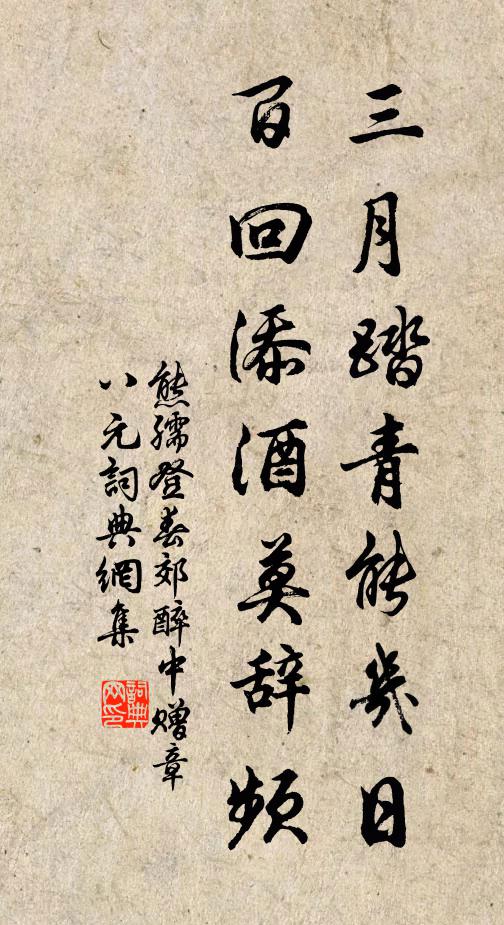 三月踏青能幾日
百回添酒莫辞頻
熊孺登春郊醉中贈章
八元詞典網集
詞典网印